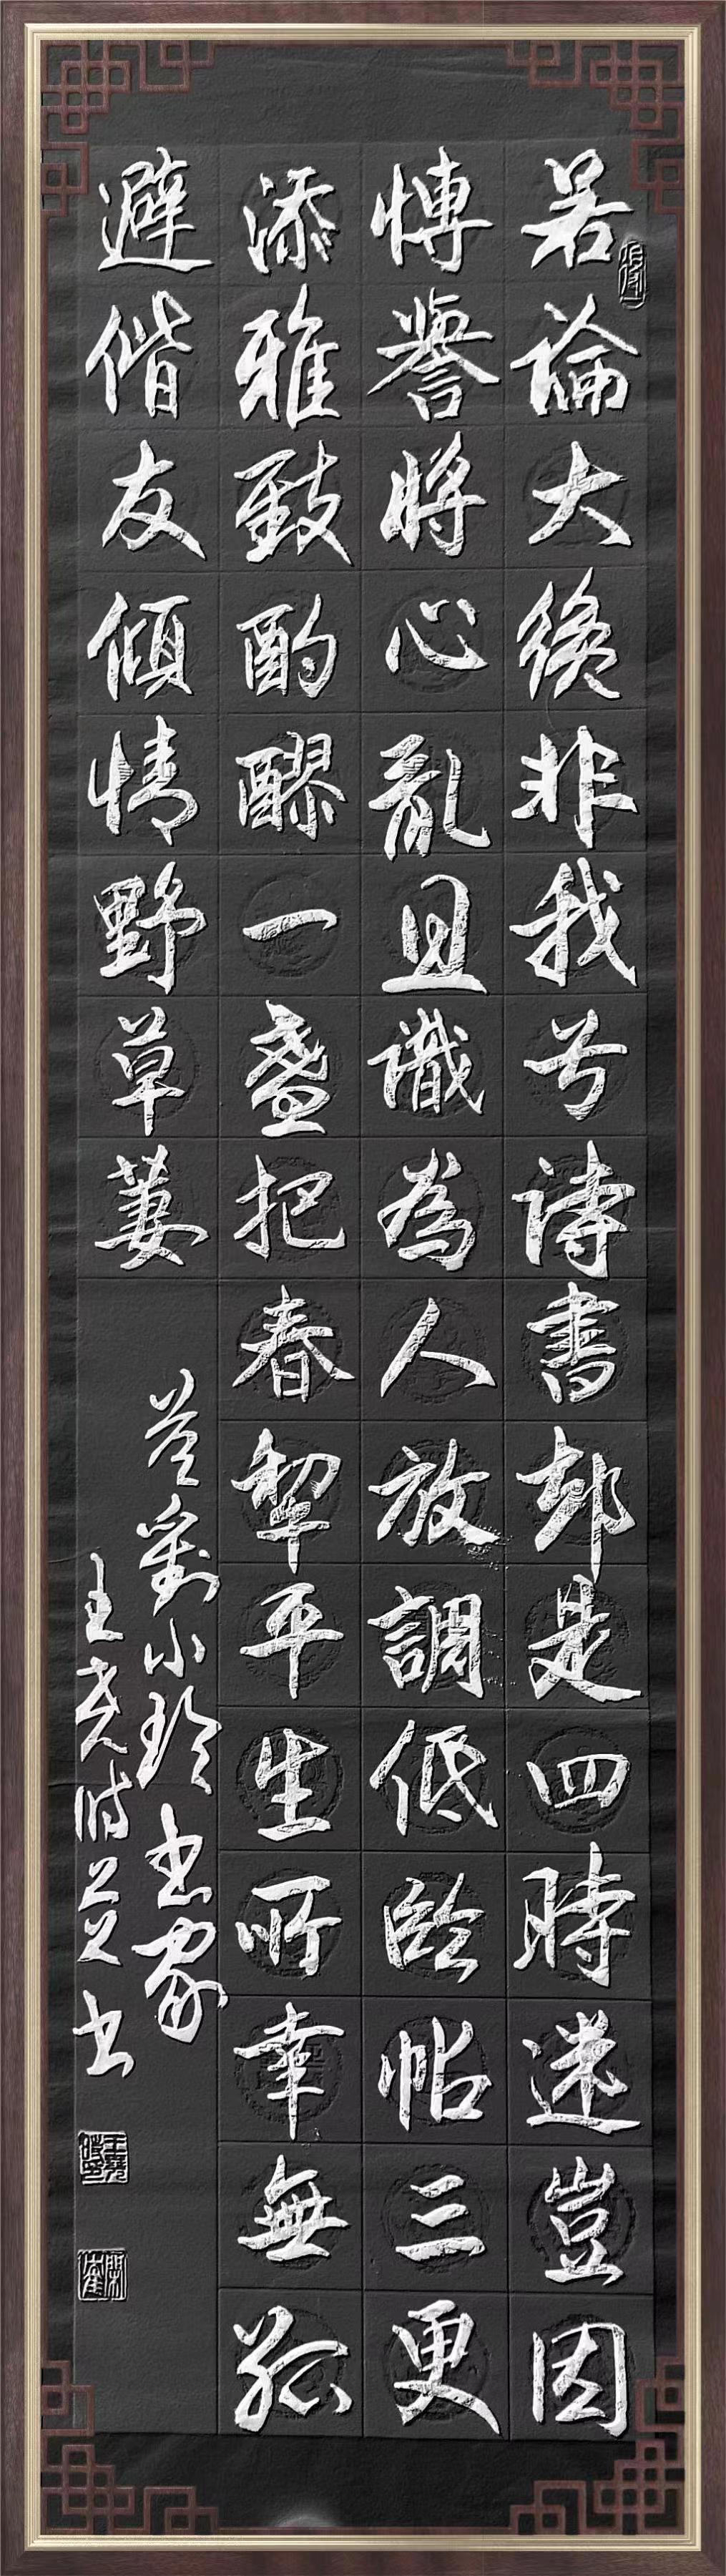 若論大非我兮詩書却是四時迷豈因
愽譽將心亂且識為人放調低臨帖三更
添雅致酌醪一盞把春犁平生所幸無孤
避偕友傾情野草萋
答劉小玲书家
王尧时书